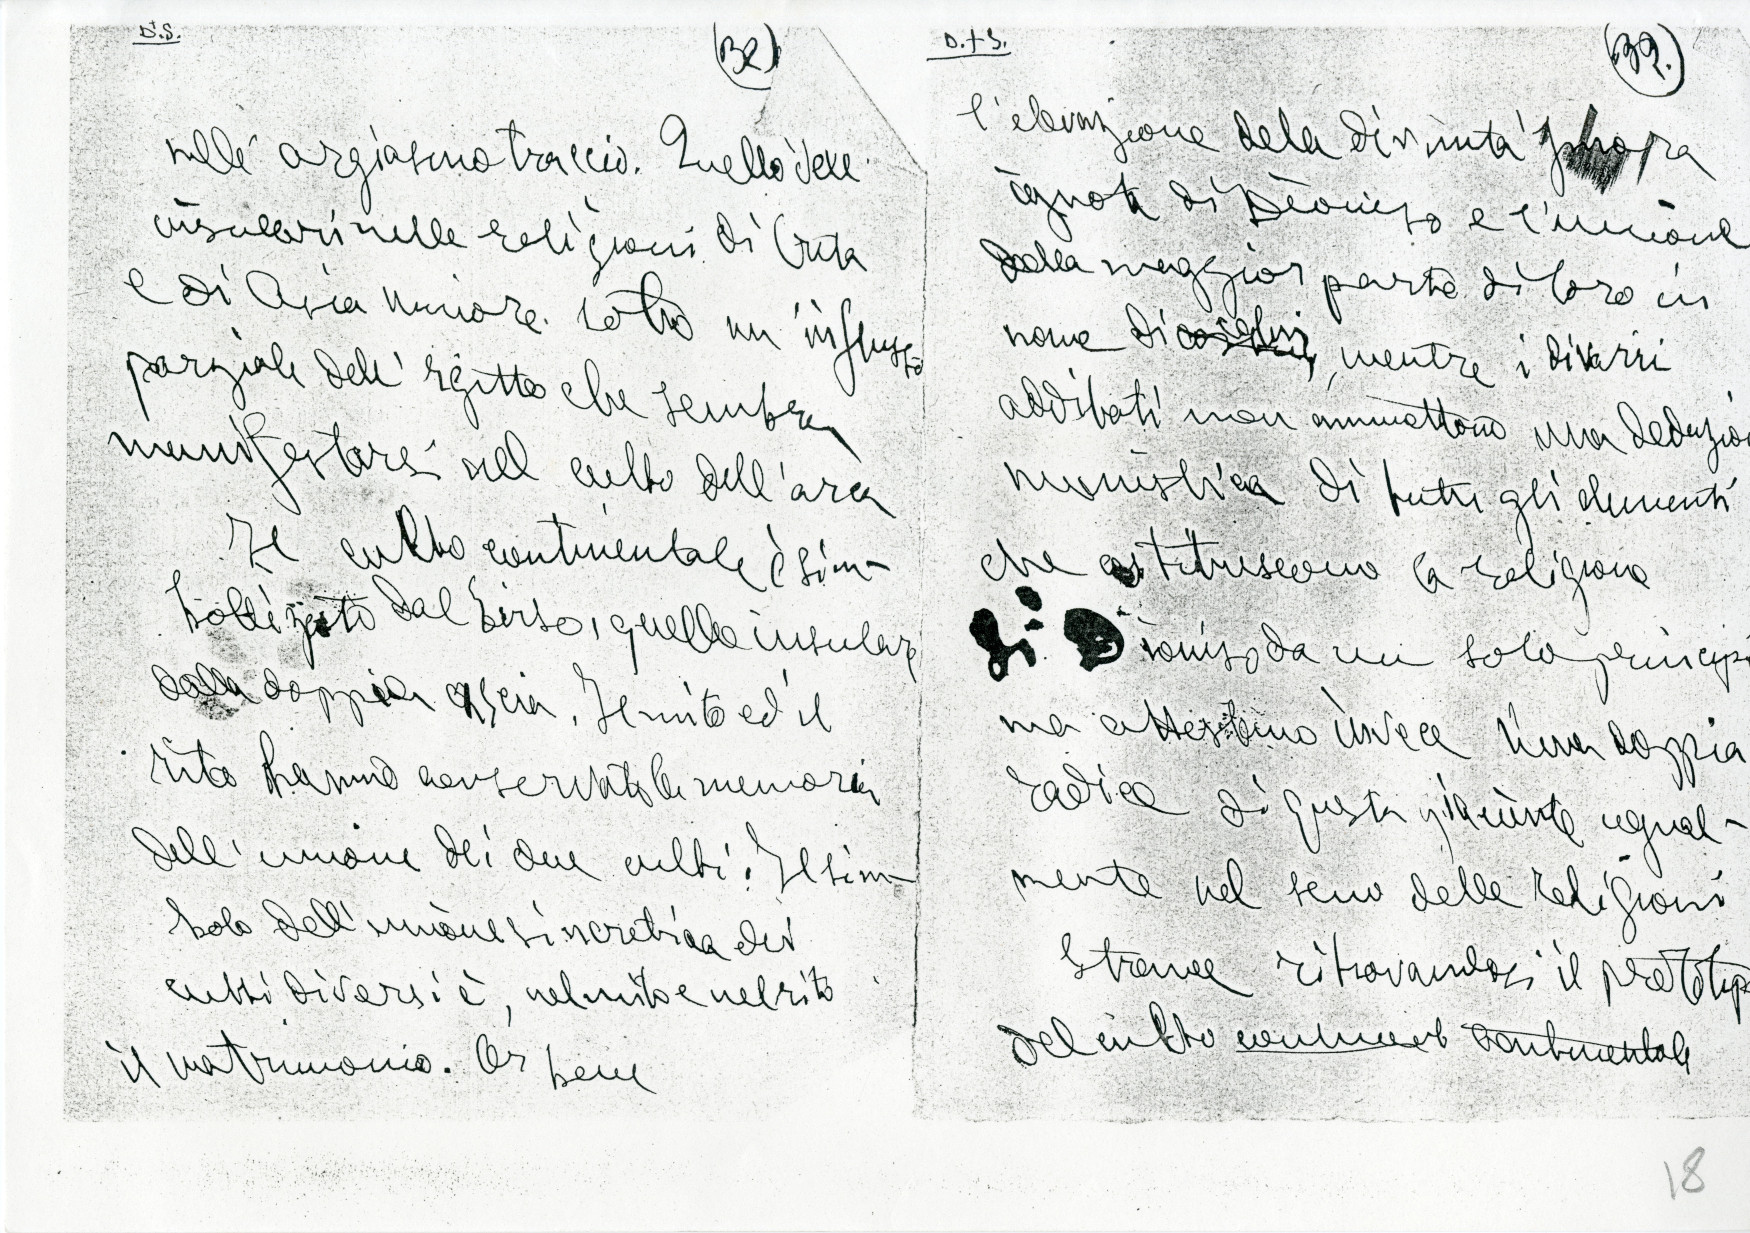 D.S.
(32)
nell'orgiasmo tracio. Quello dell
insulari nelle religioni di Creta
e di Asia minore. sotto un influsso
parziale dell'Egitto che sembra
manifestarsi nel culto dell'arca
Il culto continentale è sim-
bolizzato dal tirso, quello insulare
dalla doppia ascia. Il mito ed il
rito hanno conservato la memoria
dell'unione dei due culti: Il sim-
bolo dell'unione sincretica dei
culti diversi è, nel mito e nel rito
il matrimonio. Or bene
D. + S.
(39.)
l'elevazione della divinità
ignota di Dioniso e l'unione
della maggior parte di loro in
nome di mentre i diversi
addibati non ammettono una deduzion
monistica di tutti gli elementi
che costituiscono la religione
di Dioniso da un solo principi
ma attestano invece una doppia
radice di questa ugual-
mente nel seno delle religioni
Strane ritrovandosi il prototip
del culto continentale
18